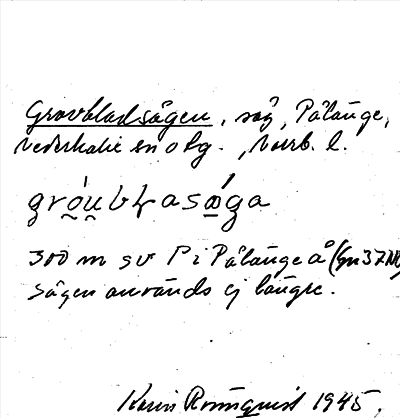 Grovbladsågen, såg, Pålänge,
Nederkalix sn o hg., Norrb. l.
gróubłasåga
300 m sv P i Pålänge å (Gn 37 NO)
Sågen används ej längre.
Karin Rönnquist 1945.